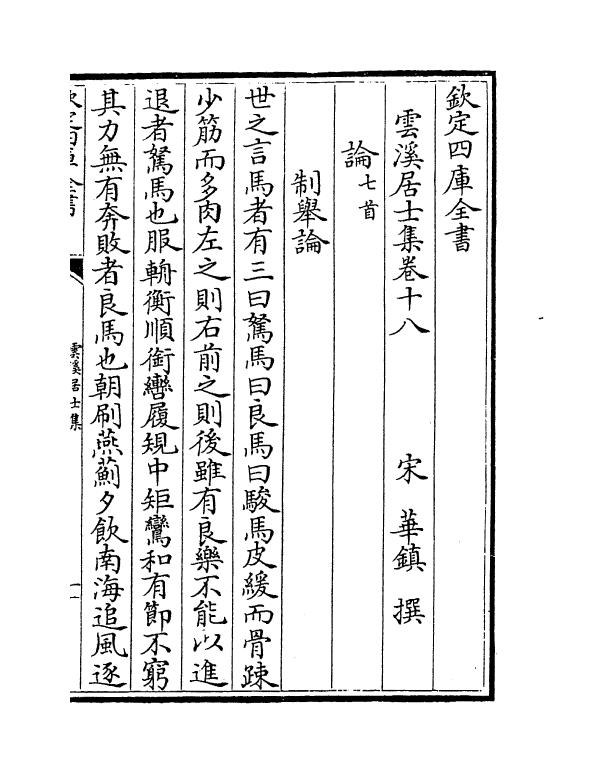 欽定四庫全書
雲溪居士集卷十八
宋 華鎮 撰
論七首
制舉論
世之言馬者有三曰駑馬曰良馬曰駿馬皮緩而骨疎
少筋而多肉左之則右前之則後雖有良樂不能以進
退者駑馬也服輈衡順銜轡履規中矩鸞和有節不窮
其力無有奔敗者良馬也朝刷燕薊夕飲南海追風逐
雲溪居士集
一